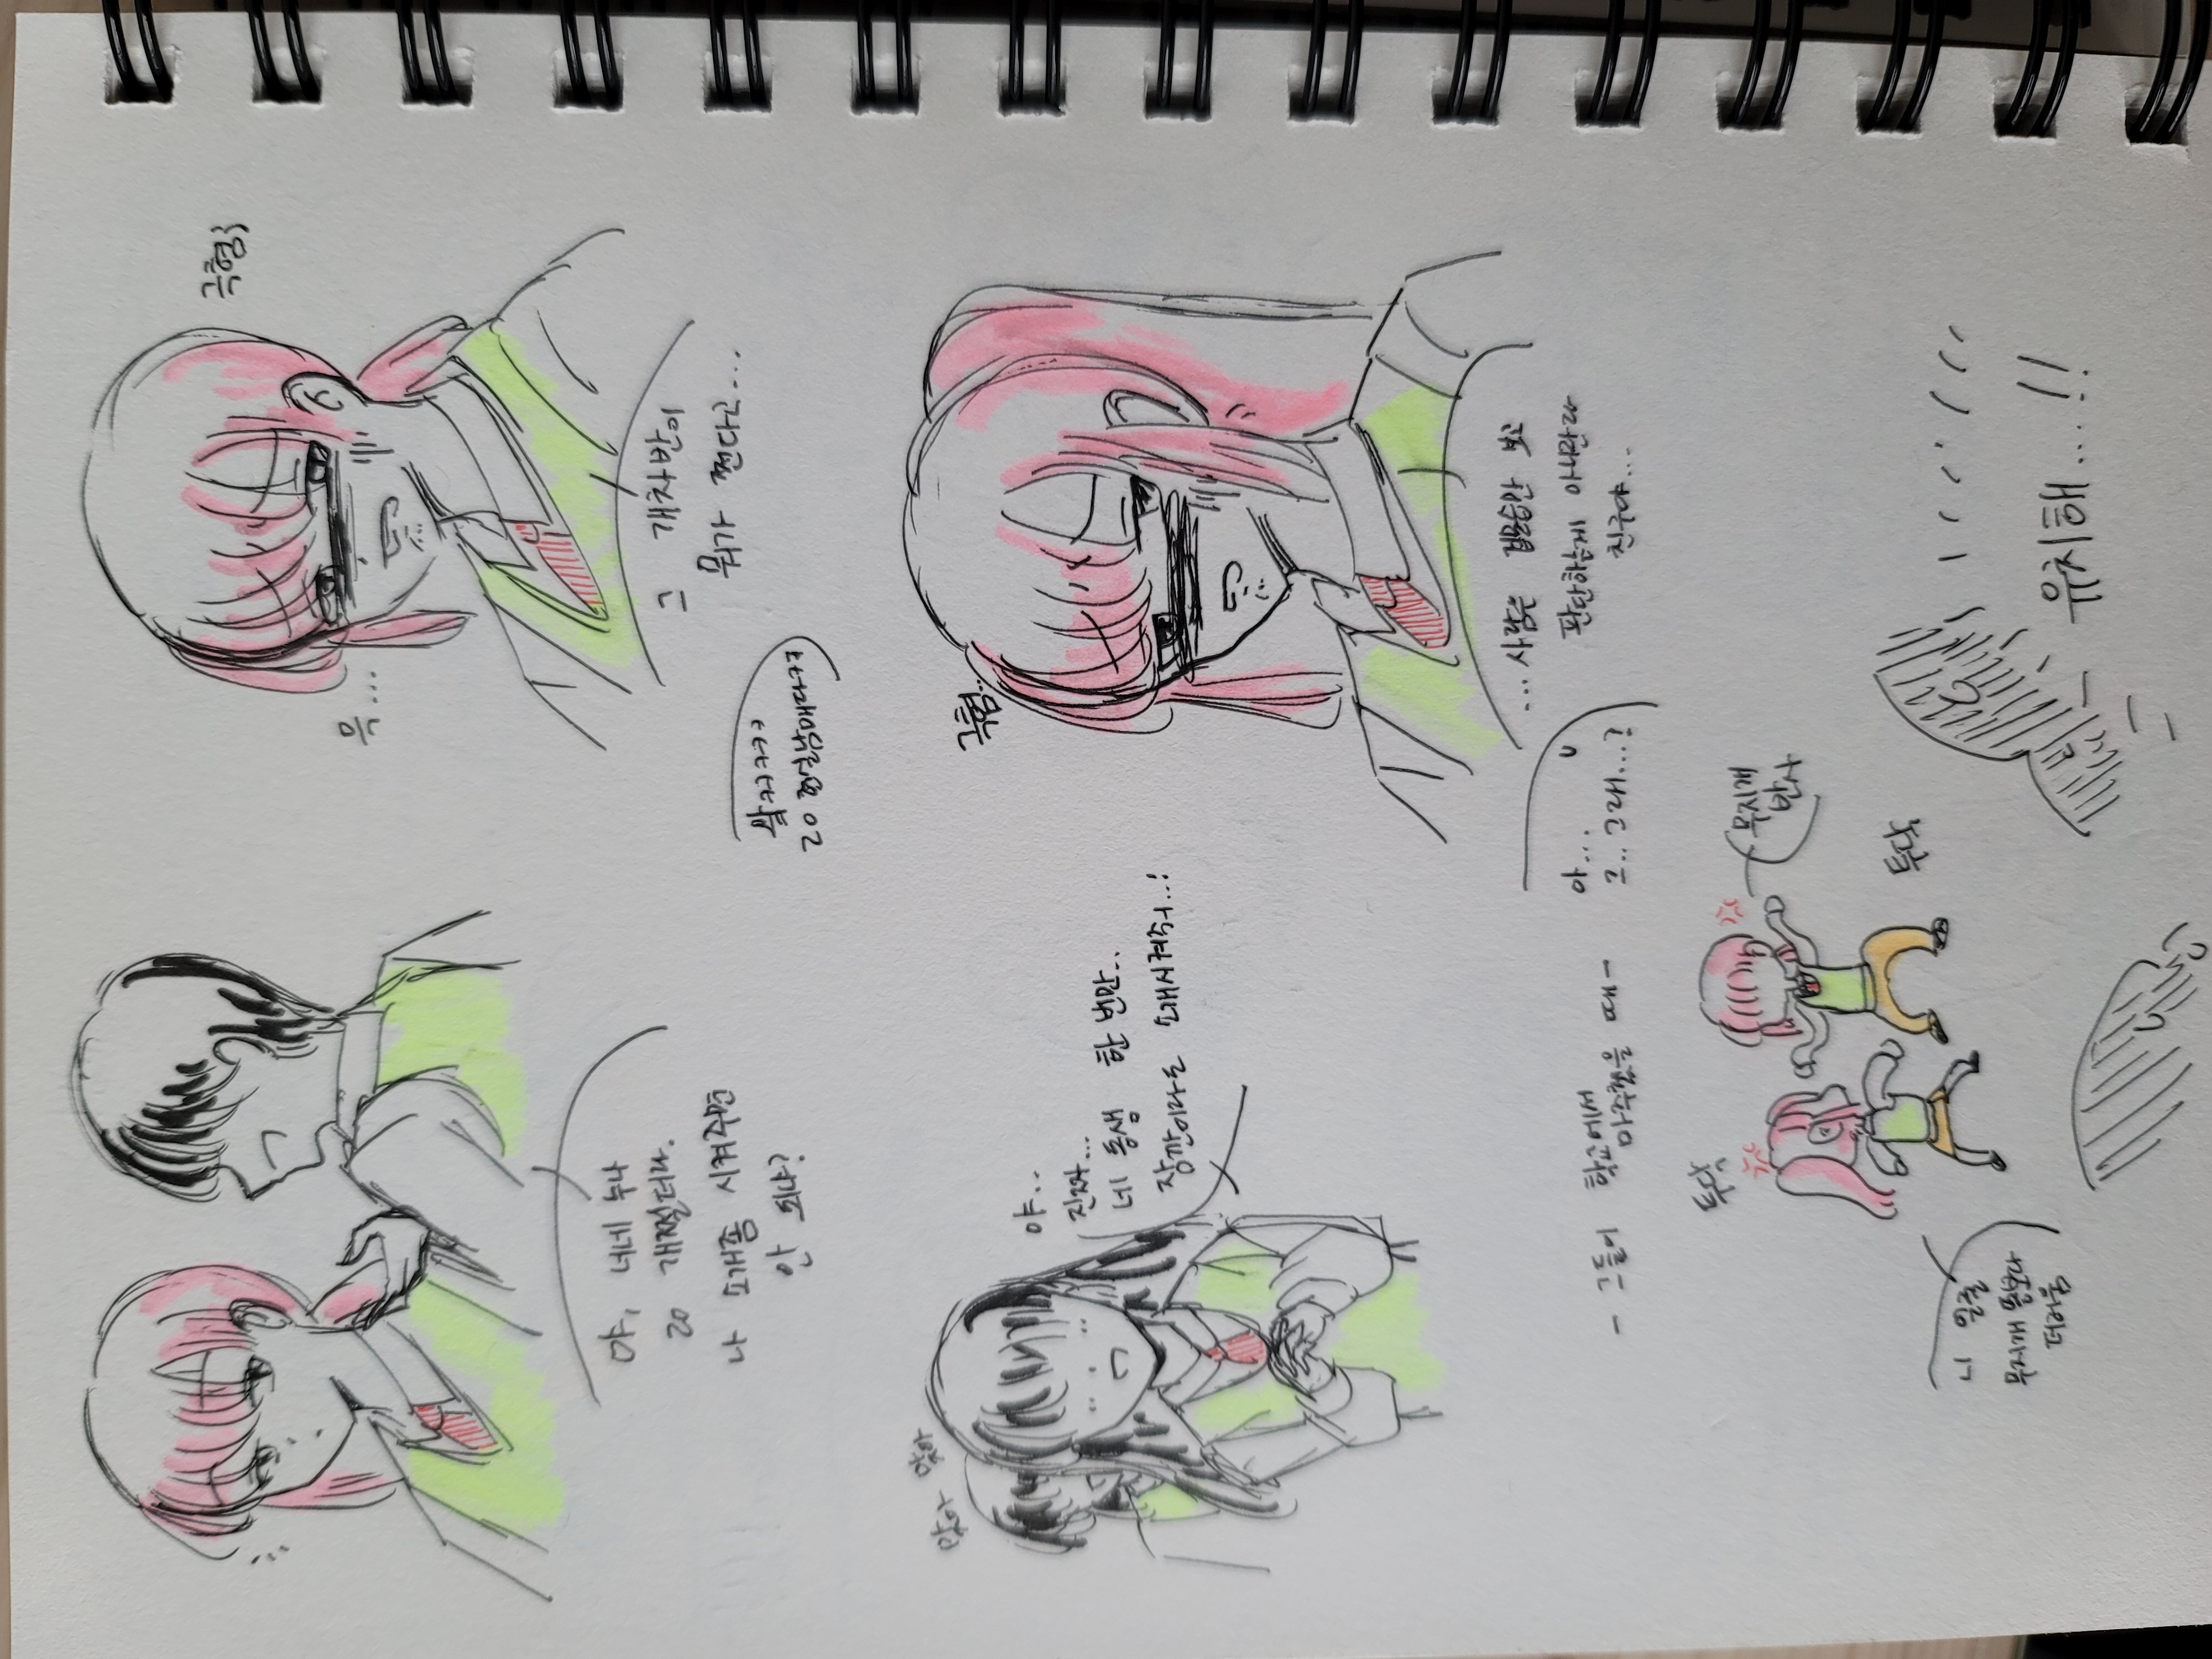 야, 너네 누나
ㄹㅇ 개쩔더라.
나 소개좀 시켜주면
안 되냐?
극혐;
윽...
그 개차반이
뭐가 쩐다고...
ㅋㅋㅋㅋㅋ
ㄹㅇ 현실남매다ㅋㅋ
맞아 맞아
야..
진짜...
네 동생 한 번만..
잠깐이라도 소개시켜줘..!
극혐..
... 사람은 겉모습만 보고
판단하는게 아니란다
친구야...
아...
그.. 그래...?
- 그들이 학교에서
마주쳤을 때 -
투닥
무지개
반사
투닥
니 얼굴
무지개 똥보다
더러움
유치해...!!